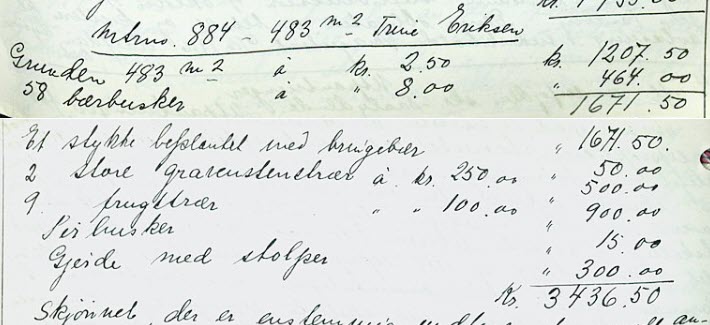 kr.
Mtrno. 884 – 483 m² Trine Eriksen
Grunden 483 m² à kr. 2.50 kr. 1207.50
58 bærbusker à " 8.00 " 464.00
1671.50
Et stykke beplantet med bringebær " 1671.50.
2 store gravenstenstrær à kr. 250.00 " 50.00
500.00
9 frugttrær " " 100.00 " 900.00
Sirbusker " 15.00
Gjerde med stolper " 300.00
Kr. 3436.50
Skjønnet, der er enstemmig